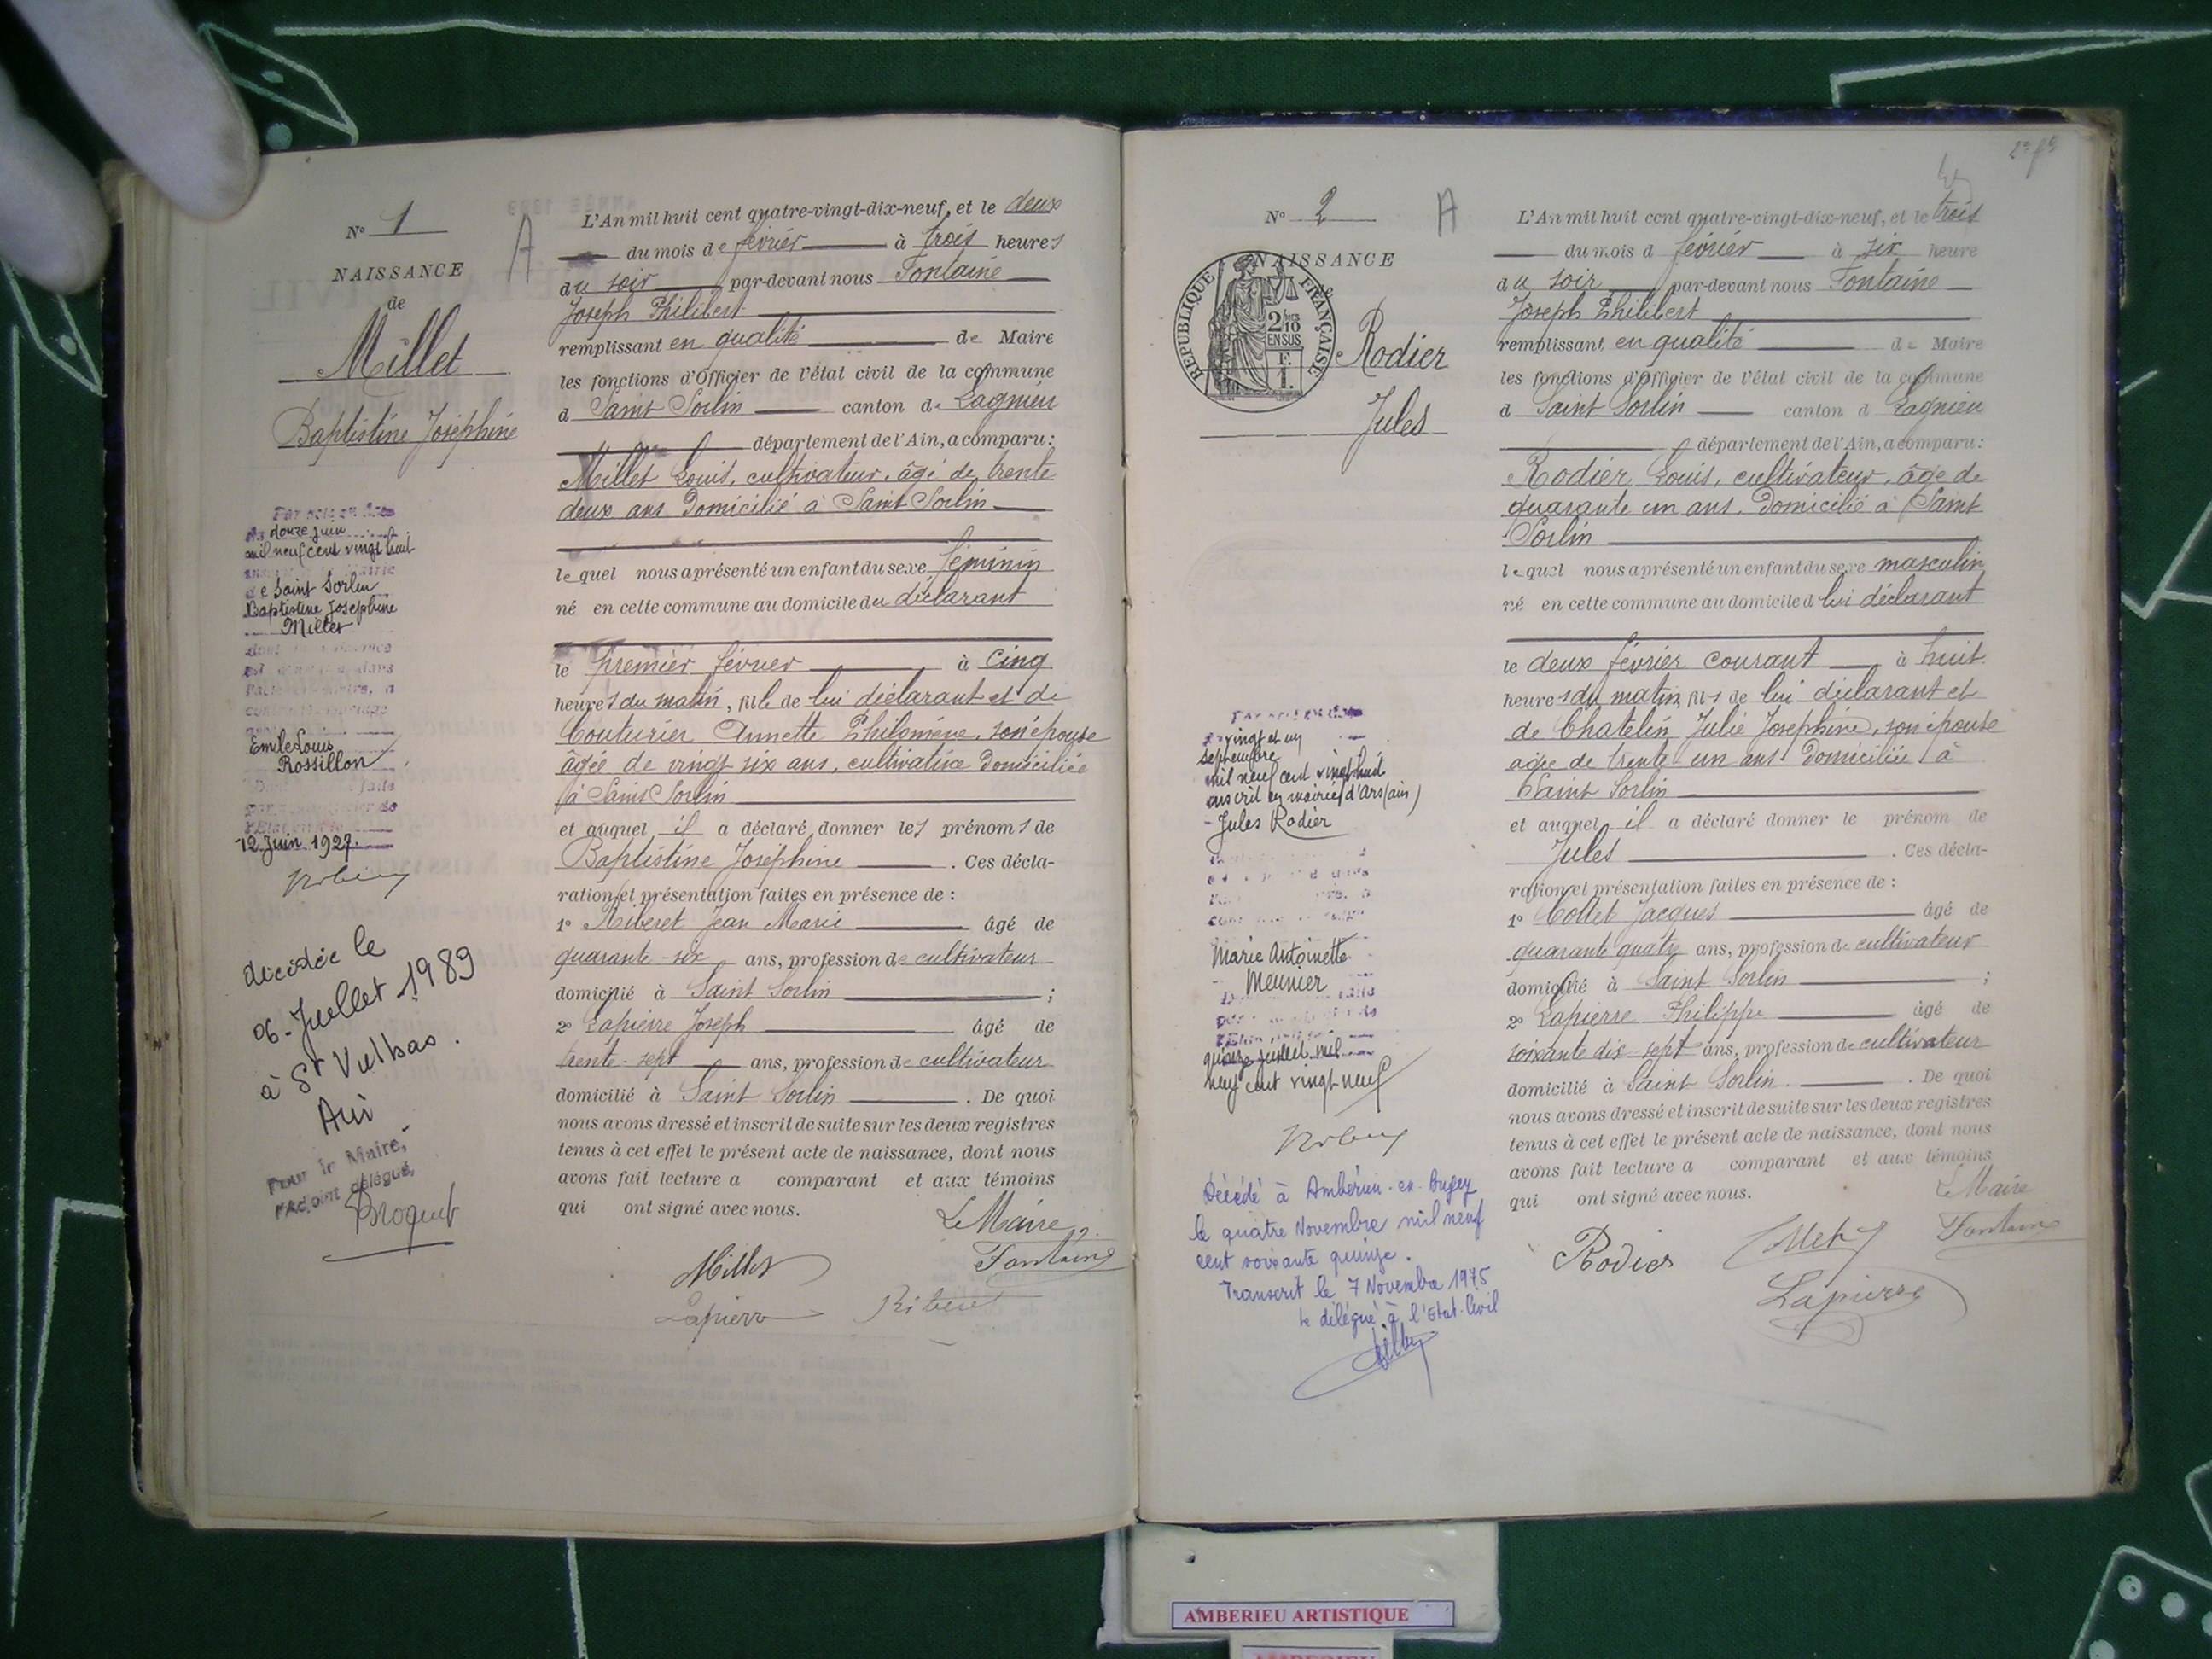 N° 1
NAISSANCE
de
Millet
Baptistine Joséphine
Par acte en date
du douze juin
mil neuf cent vingt huit
de Saint Sorlin
Baptistine Josephine
Millet
Emile Louis
Rossillon
12 Juin 1927.
décédée le
06 - Juillet 1989
à St Vulbas.
Ain
Pour le Maire,
l'Adjoint délégué,
A
L'An mil huit cent quatre-vingt-dix-neuf, et le deux
du mois de février à trois heures
du soir par-devant nous Fontaine
Joseph Philibert
remplissant en qualité de Maire
les fonctions d'Officier de l'état civil de la commune
d Saint Sorlin canton de Lagnieu
département de l'Ain, a comparu:
Millet Louis, cultivateur, âgé de trente
deux ans Domicilié à Saint Sorlin
lequel nous a présenté un enfant du sexe féminin
né en cette commune au domicile du déclarant
le premier février à cinq
heures du matin, fille de lui déclarant et de
Couturier Annette Philomène, son épouse
âgée de vingt six ans, cultivatrice Domiciliée
à Saint Sorlin
et auquel il a déclaré donner les prénoms de
Baptistine Joséphine . Ces décla-
ration et présentation faites en présence de :
1° Riberet Jean Marie âgé de
quarante-six ans, profession de cultivateur
domicilié à Saint Sorlin ;
2° Lapierre Joseph âgé de
trente-sept ans, profession de cultivateur
domicilié à Saint Sorlin . De quoi
nous avons dressé et inscrit de suite sur les deux registres
tenus à cet effet le présent acte de naissance, dont nous
avons fait lecture a comparant et aux témoins
qui ont signé avec nous.
Le Maire,
Fontaine
Millet
Lapierre
Riberet
N° 2
NAISSANCE
REPUBLIQUE FRANÇAISE
2/10
EN SUS
F.
1.
Rodier
Jules
vingt et un
septembre
mil neuf cent vingt huit
inscrit en mairie d'Ars (ain)
Jules Rodier
Marie Antoinette
Meunier
quinze juillet mil
neuf cent vingt neuf
Décédé à Ambérieu-en-Bugey
le quatre Novembre mil neuf
cent soixante quinze.
Transcrit le 7 Novembre 1975
Le délégué à l'Etat-Civil
A
L'An mil huit cent quatre-vingt-dix-neuf, et le trois
du mois d février à six heure
du soir par-devant nous Fontaine
Joseph Philibert
remplissant en qualité de Maire
les fonctions d'Officier de l'état civil de la commune
d Saint Sorlin canton d Lagnieu
département de l'Ain, a comparu:
Rodier Louis, cultivateur, âgé de
quarante un ans, Domicilié à Saint
Sorlin
lequel nous a présenté un enfant du sexe masculin
né en cette commune au domicile d lui déclarant
le deux février courant à huit
heures du matin, fils de lui déclarant et
de Chatelin Julie Josephine, son épouse
agée de trente un ans Domiciliée à
Saint Sorlin
et auquel il a déclaré donner le prénom de
Jules . Ces décla-
ration et présentation faites en présence de :
1° Collet Jacques âgé de
quarante quatre ans, profession de cultivateur
domicilié à Saint Sorlin ;
2° Lapierre Philippe âgé de
soixante dix-sept ans, profession de cultivateur
domicilié à Saint Sorlin . De quoi
nous avons dressé et inscrit de suite sur les deux registres
tenus à cet effet le présent acte de naissance, dont nous
avons fait lecture a comparant et aux témoins
qui ont signé avec nous.
Le Maire
Fontaine
Rodier
Collet
Lapierre
AMBERIEU ARTISTIQUE